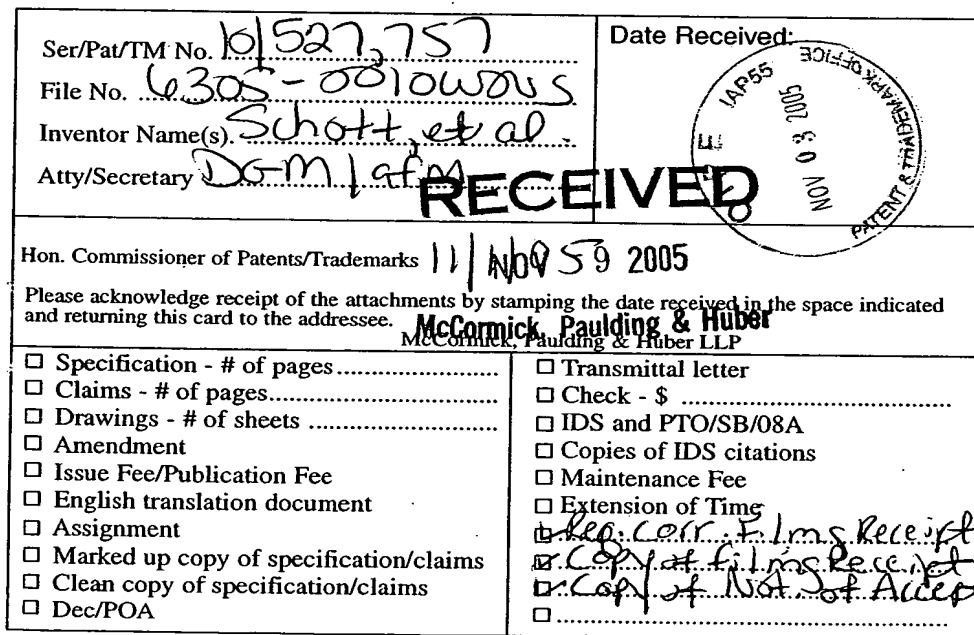 Ser/Pat/TM No. 10/527,757
File No. 6305-0010WOUS
Inventor Name(s). Schott, et al.
Atty/Secretary DGM/afm
Date Received:
IAP55
NOV 03 2005
PATENT & TRADEMARK OFFICE
RECEIVED
Hon. Commissioner of Patents/Trademarks 11/ NOV 2005
Please acknowledge receipt of the attachments by stamping the date received in the space indicated
and returning this card to the addressee.
McCormick, Paulding & Huber
McCormick, Paulding & Huber LLP
☐ Specification - # of pages
☐ Claims - # of pages
☐ Drawings - # of sheets
☐ Amendment
☐ Issue Fee/Publication Fee
☐ English translation document
☐ Assignment
☐ Marked up copy of specification/claims
☐ Clean copy of specification/claims
☐ Dec/POA
☐ Transmittal letter
☐ Check - $
☐ IDS and PTO/SB/08A
☐ Copies of IDS citations
☐ Maintenance Fee
☐ Extension of Time
☑ Req. Corr. Filing Receipt
☑ Copy of Filing Receipt
☑ Copy of Not. of Accep
☐